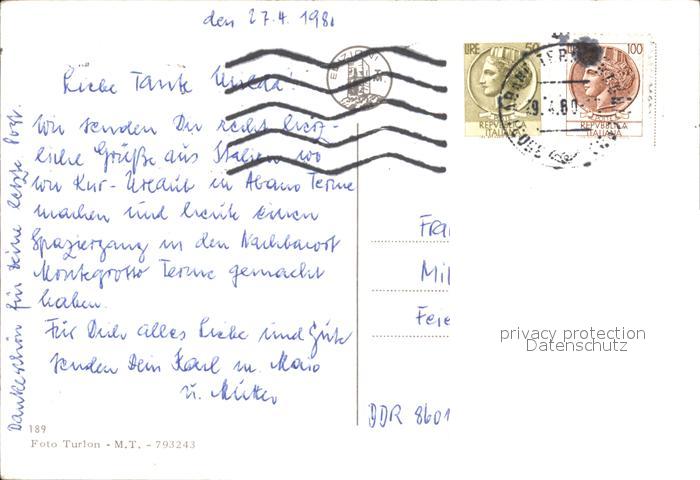 den 27.4.1980
Liebe Tante Milda!
Wir senden Dir recht herz-
liche Grüße aus Italien wo
wir Kur-Urlaub in Abano Terme
machen und heute einen
Spaziergang in den Nachbarort
Montegrotto Terme gemacht
haben.
Für Dich alles Liebe und Gute
senden Dein Karl u. Maio
u. Mutter
Dankeschön für Deine letzte Post.
LIRE 50
REPVBBLICA
ITALIANA
100
REPVBBLICA
ITALIANA
Fra
Mil
Feie
DDR 8601
privacy protection
Datenschutz
189
Foto Turlon - M.T. - 793243